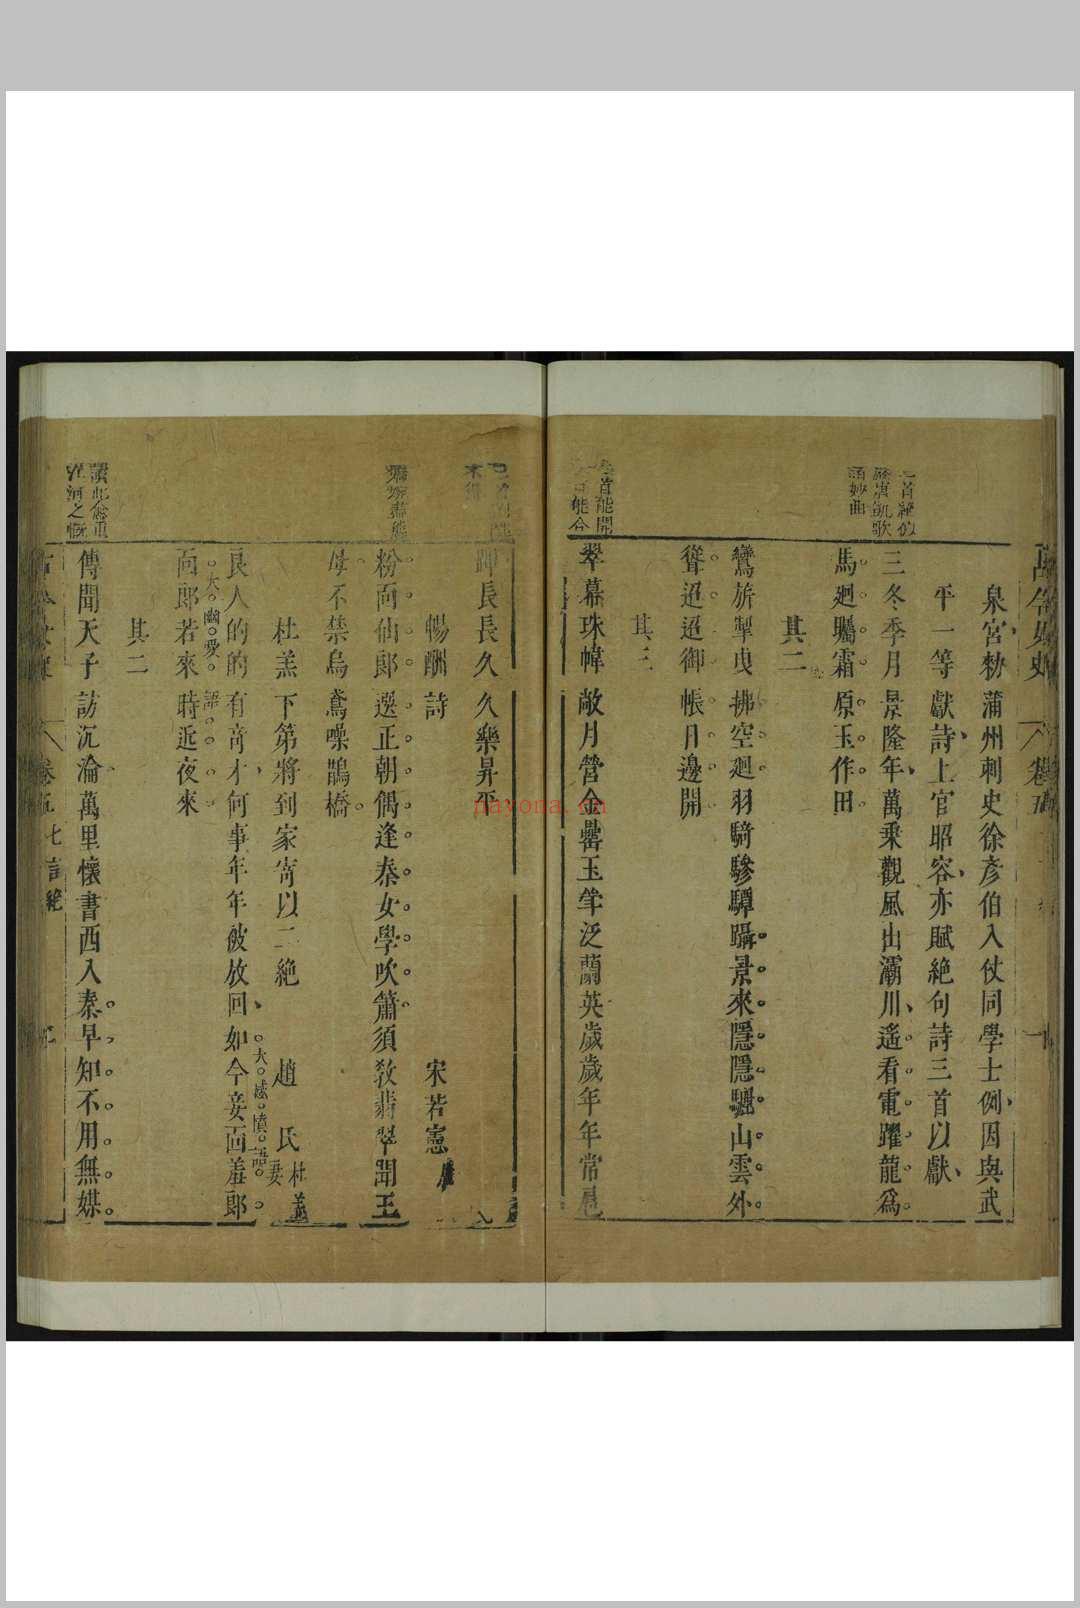 泉宮勑蒲州刺史徐彥伯入仗同學士例因與武
平一等獻詩上官昭容亦賦絶句詩三首以獻
三冬季月景隆年萬乗觀風出灞川遙看電躍龍爲
馬廻矚霜原玉作田
其二
鸞旂掣曳拂空廻羽騎驂驔躡景來隱隱驪山雲外
聳迢迢御帳日邊開
其三
翠幕珠幃敞月營金罍玉斝泛蘭英歲歲年年常扈
蹕長長久久樂昇平
暢酬詩
宋若憲
粉面仙郎選正朝偶逢秦女學吹簫須教翡翠聞王
母不禁烏鳶噪鵲橋
杜羔下第將到家寄以二絶
趙氏
杜羔
妻
良人的的有奇才何事年年被放回如今妾面羞郎
面郎若來時近夜來
大感憤語
大幽愛語
其二
傳聞天子訪沉淪萬里懷書西入秦早知不用無媒
卷五
七言絶
navona.cn